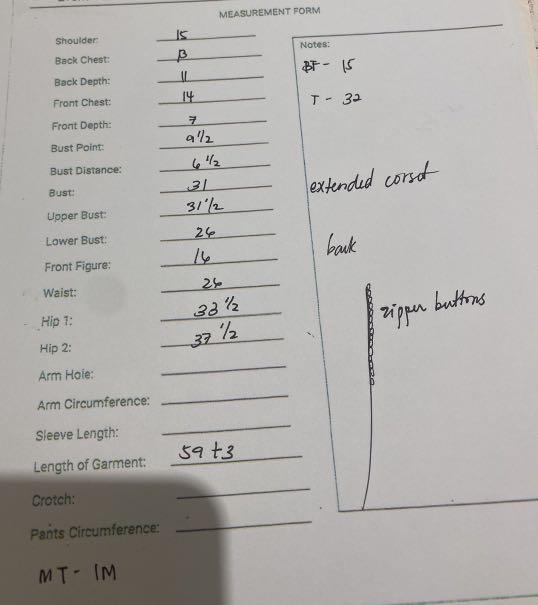 MEASUREMENT FORM
Shoulder: 15
Back Chest: 13
Back Depth: 11
Front Chest: 14
Front Depth: 7
Bust Point: 9 1/2
Bust Distance: 6 1/2
Bust: 31
Upper Bust: 31 1/2
Lower Bust: 26
Front Figure: 16
Waist: 26
Hip 1: 33 1/2
Hip 2: 37 1/2
Arm Hole:
Arm Circumference:
Sleeve Length:
Length of Garment: 59 +3
Crotch:
Pants Circumference:
MT - 1M
Notes:
BF - 15
T - 32
extended corset
back
zipper buttons